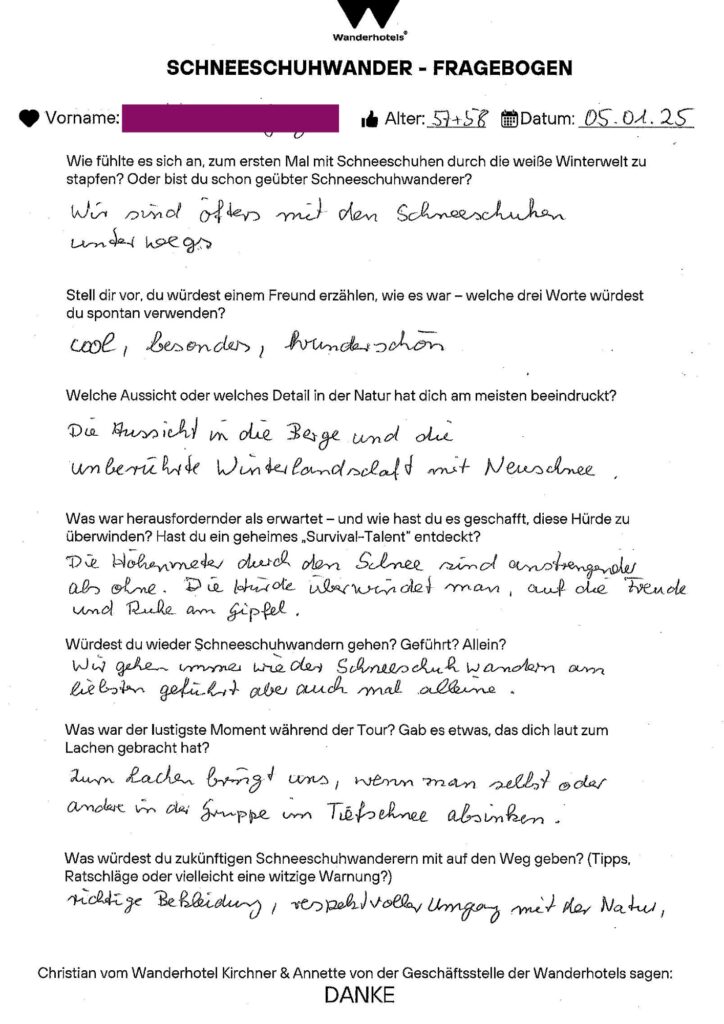 Wanderhotels®
SCHNEESCHUHWANDER - FRAGEBOGEN
Vorname: Alter: 57+58 Datum: 05.01.25
Wie fühlte es sich an, zum ersten Mal mit Schneeschuhen durch die weiße Winterwelt zu
stapfen? Oder bist du schon geübter Schneeschuhwanderer?
Wir sind öfters mit den Schneeschuhen
unterwegs
Stell dir vor, du würdest einem Freund erzählen, wie es war – welche drei Worte würdest
du spontan verwenden?
cool, besonders, wunderschön
Welche Aussicht oder welches Detail in der Natur hat dich am meisten beeindruckt?
Die Aussicht in die Berge und die
unberührte Winterlandschaft mit Neuschnee.
Was war herausfordernder als erwartet – und wie hast du es geschafft, diese Hürde zu
überwinden? Hast du ein geheimes „Survival-Talent" entdeckt?
Die Höhenmeter durch den Schnee sind anstrengender
als ohne. Die Hürde überwindet man, auf die Freude
und Ruhe am Gipfel.
Würdest du wieder Schneeschuhwandern gehen? Geführt? Allein?
Wir gehen immer wieder Schneeschuhwandern am
liebsten geführt aber auch mal alleine.
Was war der lustigste Moment während der Tour? Gab es etwas, das dich laut zum
Lachen gebracht hat?
Zum Lachen bringt uns, wenn man selbst oder
andere in der Gruppe im Tiefschnee absinken.
Was würdest du zukünftigen Schneeschuhwanderern mit auf den Weg geben? (Tipps,
Ratschläge oder vielleicht eine witzige Warnung?)
richtige Bekleidung, respektvoller Umgang mit der Natur,
Christian vom Wanderhotel Kirchner & Annette von der Geschäftsstelle der Wanderhotels sagen:
DANKE